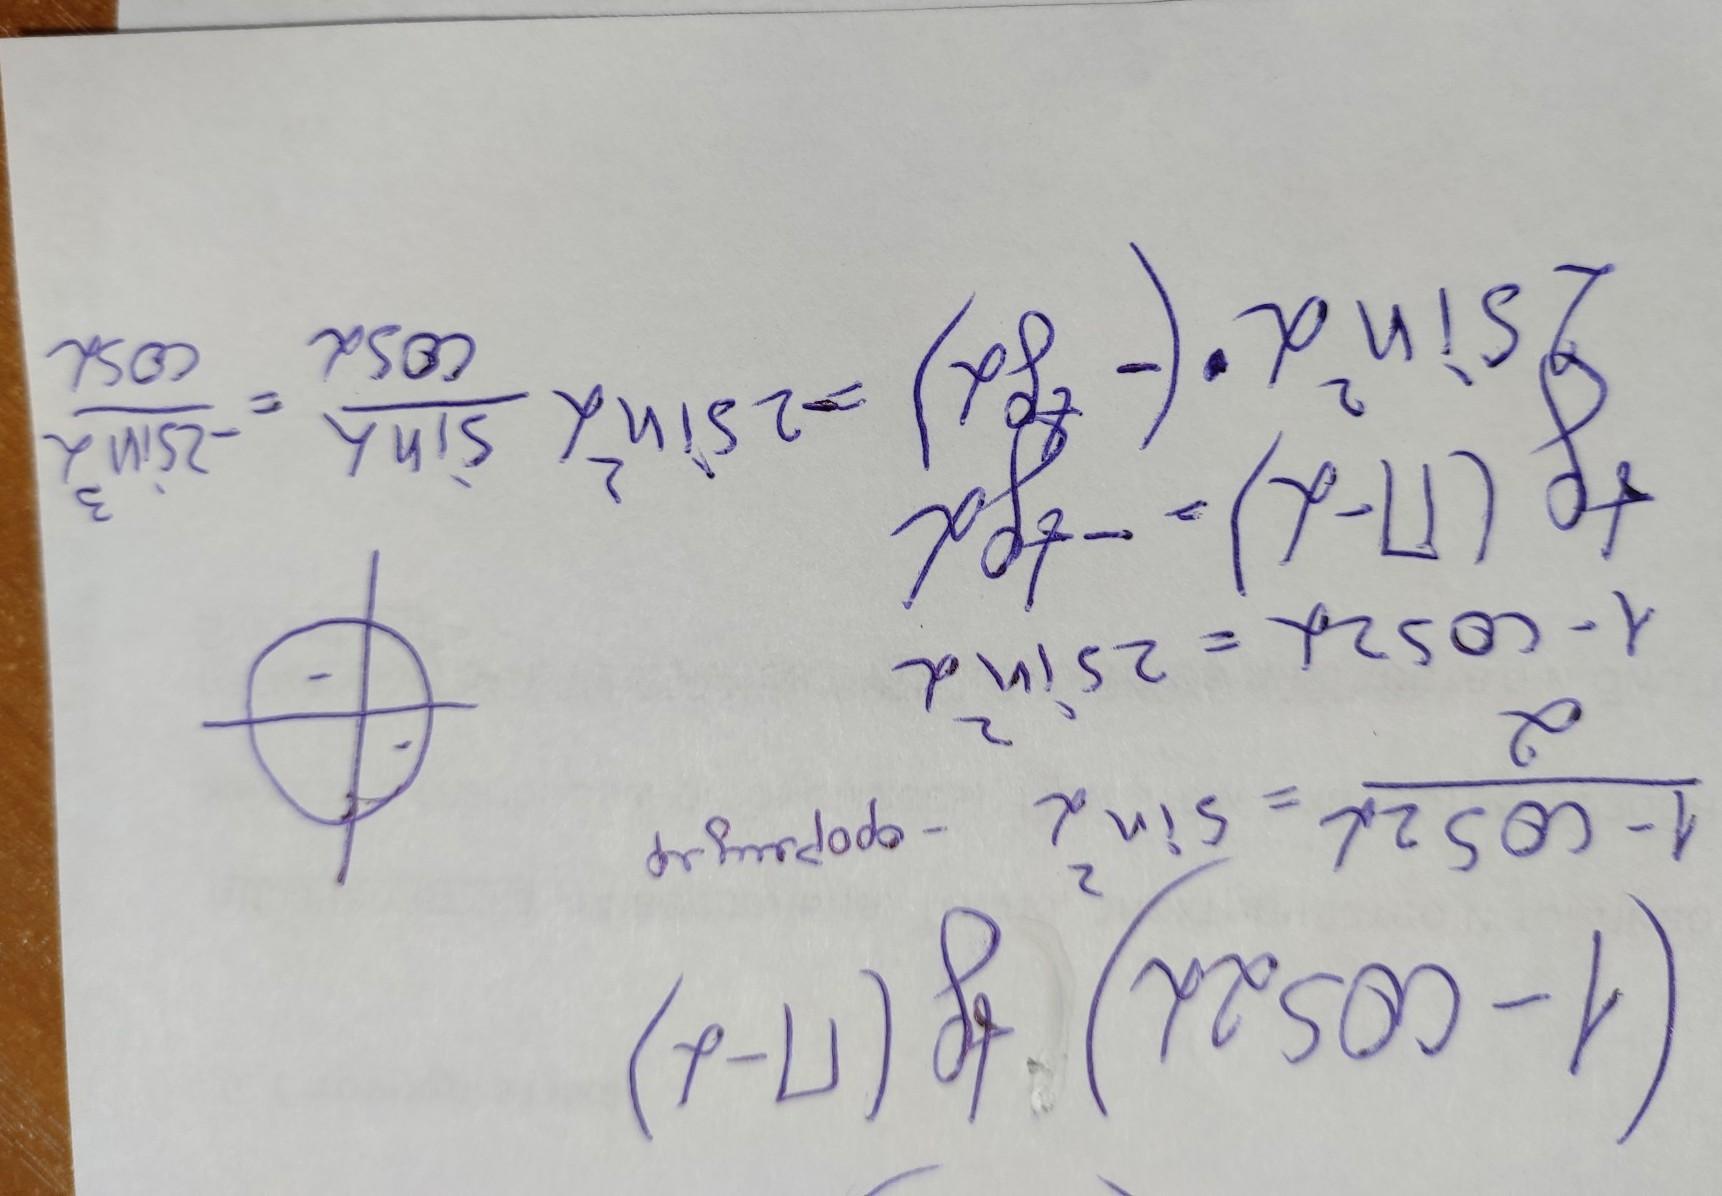 (1-cos2α) tg (π-α)
(1-cos2α)/2 = sin²α - формула
1-cos2α = 2sin²α
tg (π-α) = -tgα
2sin²α · (-tgα) = -2sin²α sinα/cosα = -2sin³α/cosα